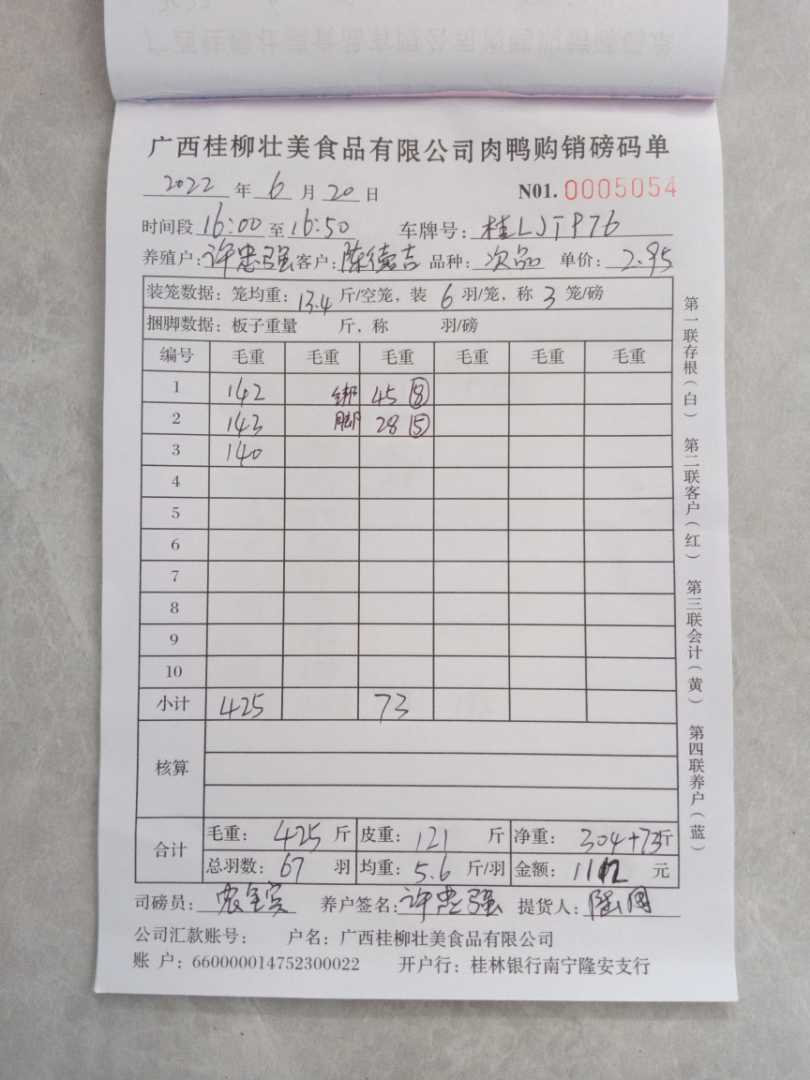 广西桂柳壮美食品有限公司肉鸭购销磅码单
2022 年 6 月 20 日 N01. 0005054
时间段 16:00 至 16:50 车牌号: 桂LJT976
养殖户: 许忠强 客户: 陈德吉 品种: 次品 单价: 2.95
装笼数据: 笼均重: 13.4 斤/空笼, 装 6 羽/笼, 称 3 笼/磅
捆脚数据: 板子重量 斤, 称 羽/磅
编号 毛重 毛重 毛重 毛重 毛重 毛重
1 142 绑 45 ⑧
2 143 脚 28 ⑤
3 140
4
5
6
7
8
9
10
小计 425 73
核算
合计 毛重: 425 斤 皮重: 121 斤 净重: 304+73斤
总羽数: 67 羽 均重: 5.6 斤/羽 金额: 1112 元
司磅员: 养户签名: 许忠强 提货人:
公司汇款账号: 户名: 广西桂柳壮美食品有限公司
账 户: 660000014752300022 开户行: 桂林银行南宁隆安支行
第一联存根(白) 第二联客户(红) 第三联会计(黄) 第四联养户(蓝)